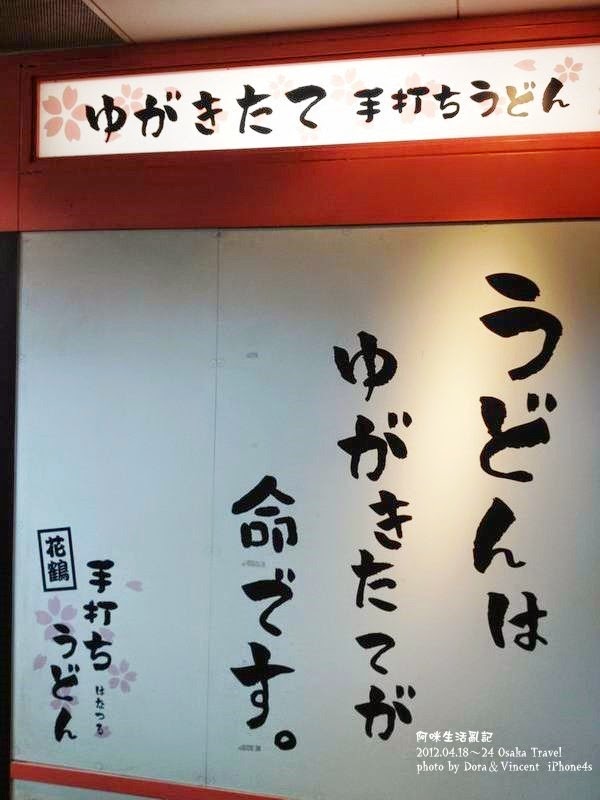 ゆがきたて 手打ちうどん
うどんは
ゆがきたてが
命です。
手打ち
うどん
はなつる
花鶴
阿咪生活亂記
2012.04.18～24 Osaka Travel
photo by Dora & Vincent iPhone4s